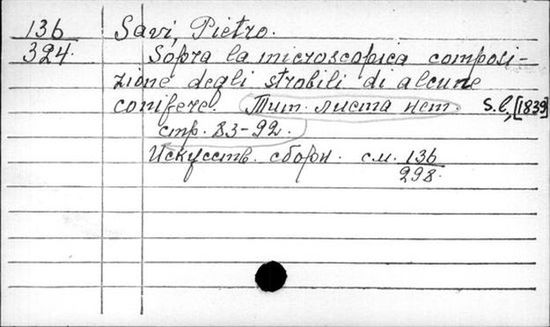 136 Savi, Pietro.
324. Sopra la microscopica composi-
zione degli strobili di alcune
conifere. Тит. листа нет. S.l., [1839]
стр. 83-92.
Искусств. сборн. см. 136
298.